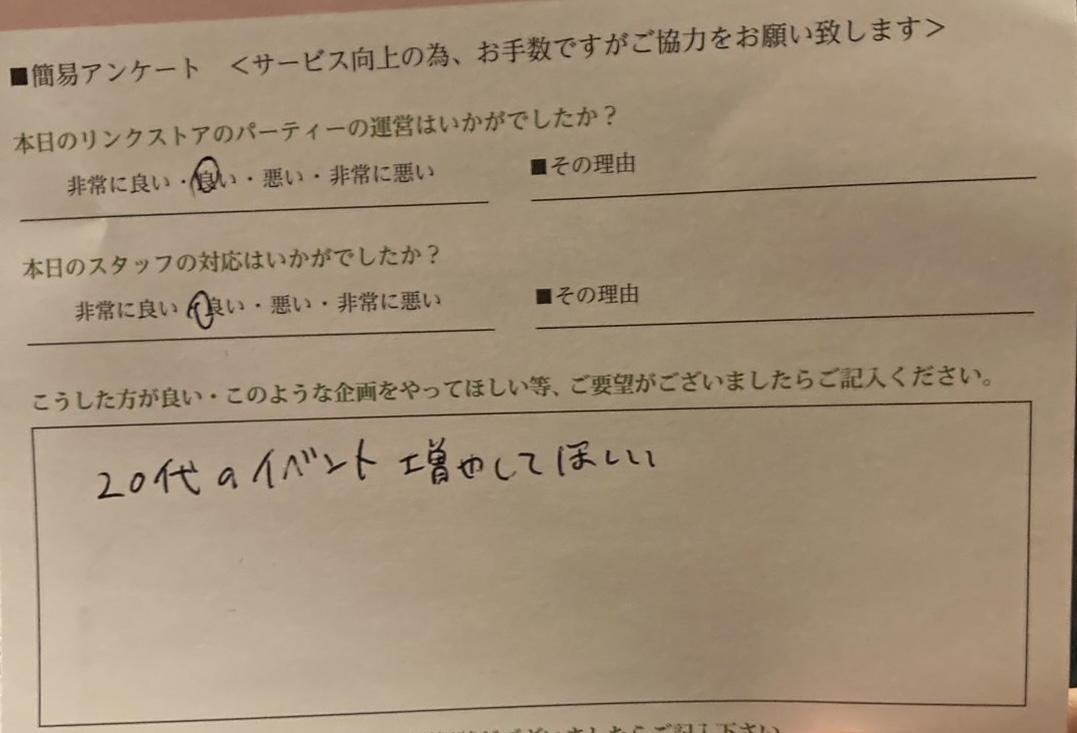 ■簡易アンケート ＜サービス向上の為、お手数ですがご協力をお願い致します＞
本日のリンクストアのパーティーの運営はいかがでしたか？
非常に良い・良い・悪い・非常に悪い ■その理由
本日のスタッフの対応はいかがでしたか？
非常に良い・良い・悪い・非常に悪い ■その理由
こうした方が良い・このような企画をやってほしい等、ご要望がございましたらご記入ください。
20代のイベント増やしてほしい
ございましたらご記入下さい